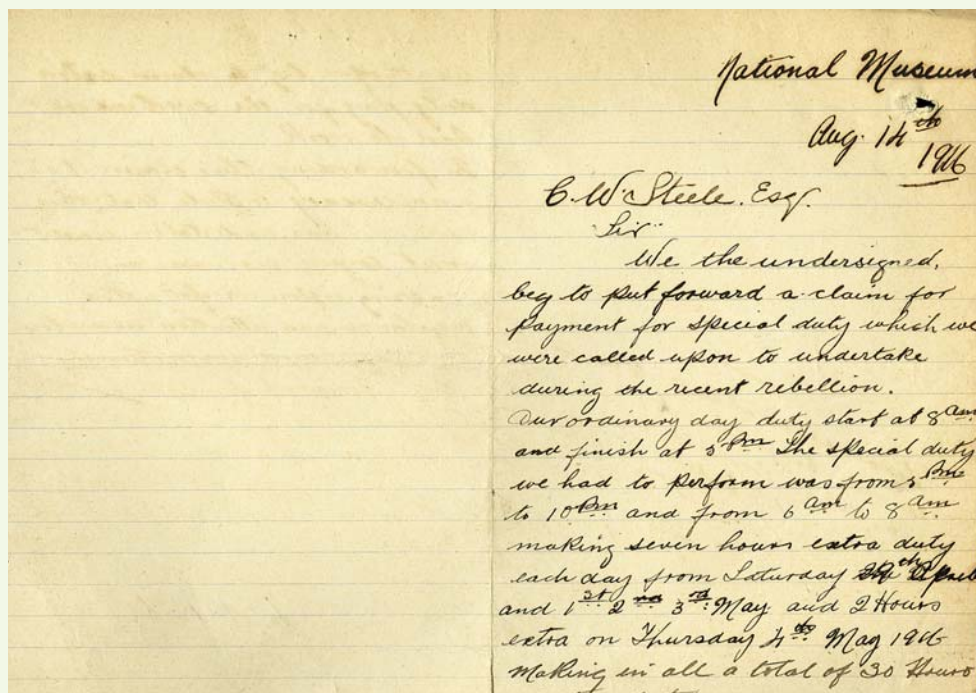 National Museum
Aug. 14th
1916
C. W. Steele. Esq.
Sir
We the undersigned,
beg to put forward a claim for
payment for special duty which we
were called upon to undertake
during the recent rebellion.
Our ordinary day duty start at 8 am
and finish at 5 Pm The special duty
we had to perform was from 5 Pm
to 10 Pm and from 6 am to 8 am
making seven hours extra duty
each day from Saturday 29th April
and 1st 2nd 3rd May and 2 Hours
extra on Thursday 4th May 1916
Making in all a total of 30 Hours